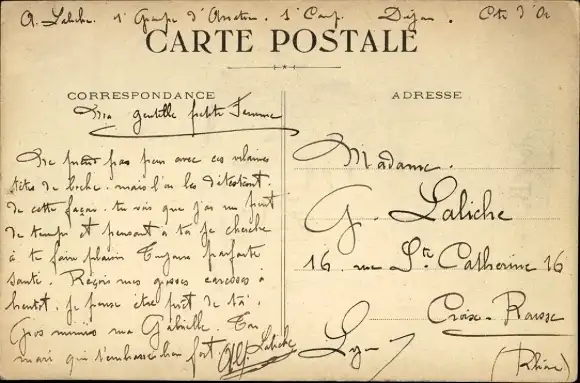 A. Laliche. 1er Groupe d'Aviation. 1e Comp. Dijon. Côte d'Or
CARTE POSTALE
CORRESPONDANCE
ADRESSE
Ma gentille petite Femme
Ne prend pas peur avec ces vilaines
têtes de boche. mais l'on les détestent
de cette façon. tu vois que j'ai un peut
de temps et pensant à toi je cherche
à te faire plaisir Toujours parfaite
santé. Reçois mes grosses caresses à
bientot. je pense être prêt de toi.
Gros mimis ma Gabrielle. Ton
mari qui t'embrasse bien fort. Alf. Laliche
Madame.
G. Laliche
16. rue Ste Catherine 16
Croix-Rousse
Lyon
(Rhône)